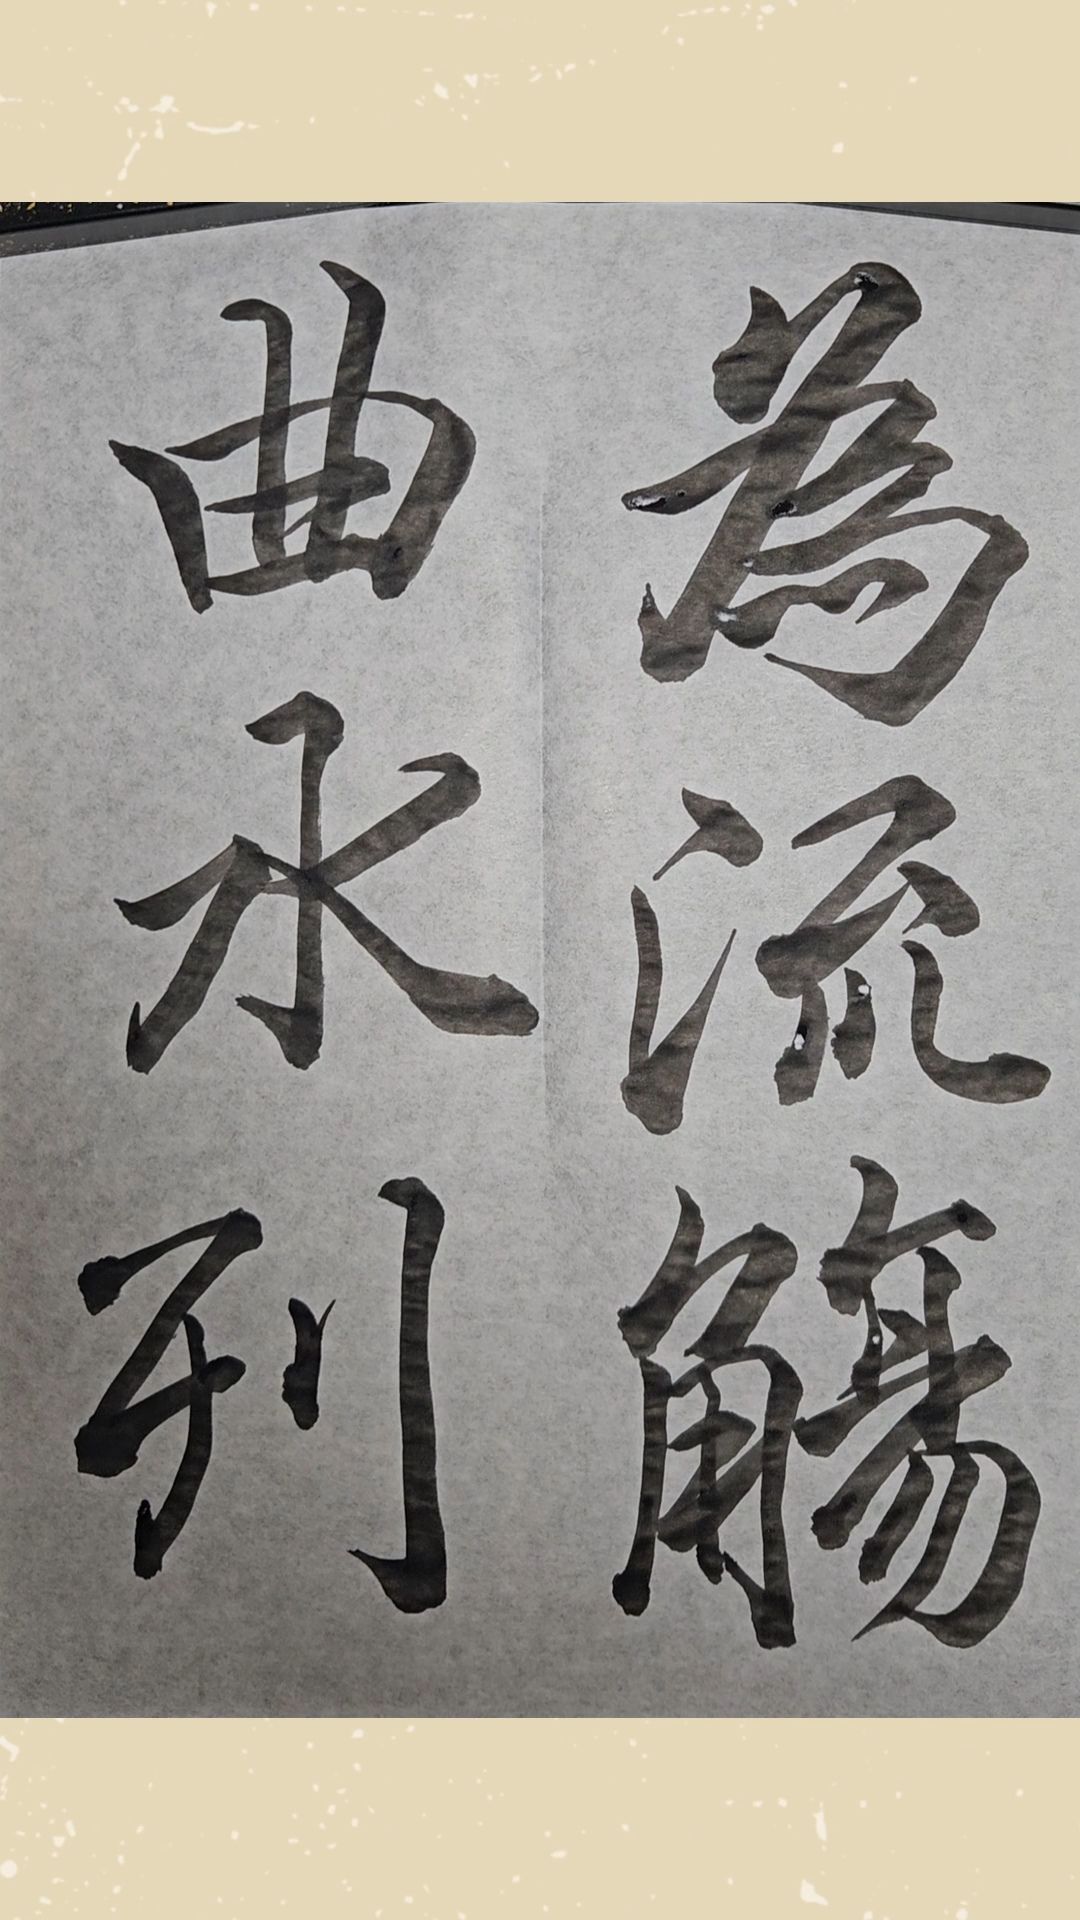 為流觴
曲水列